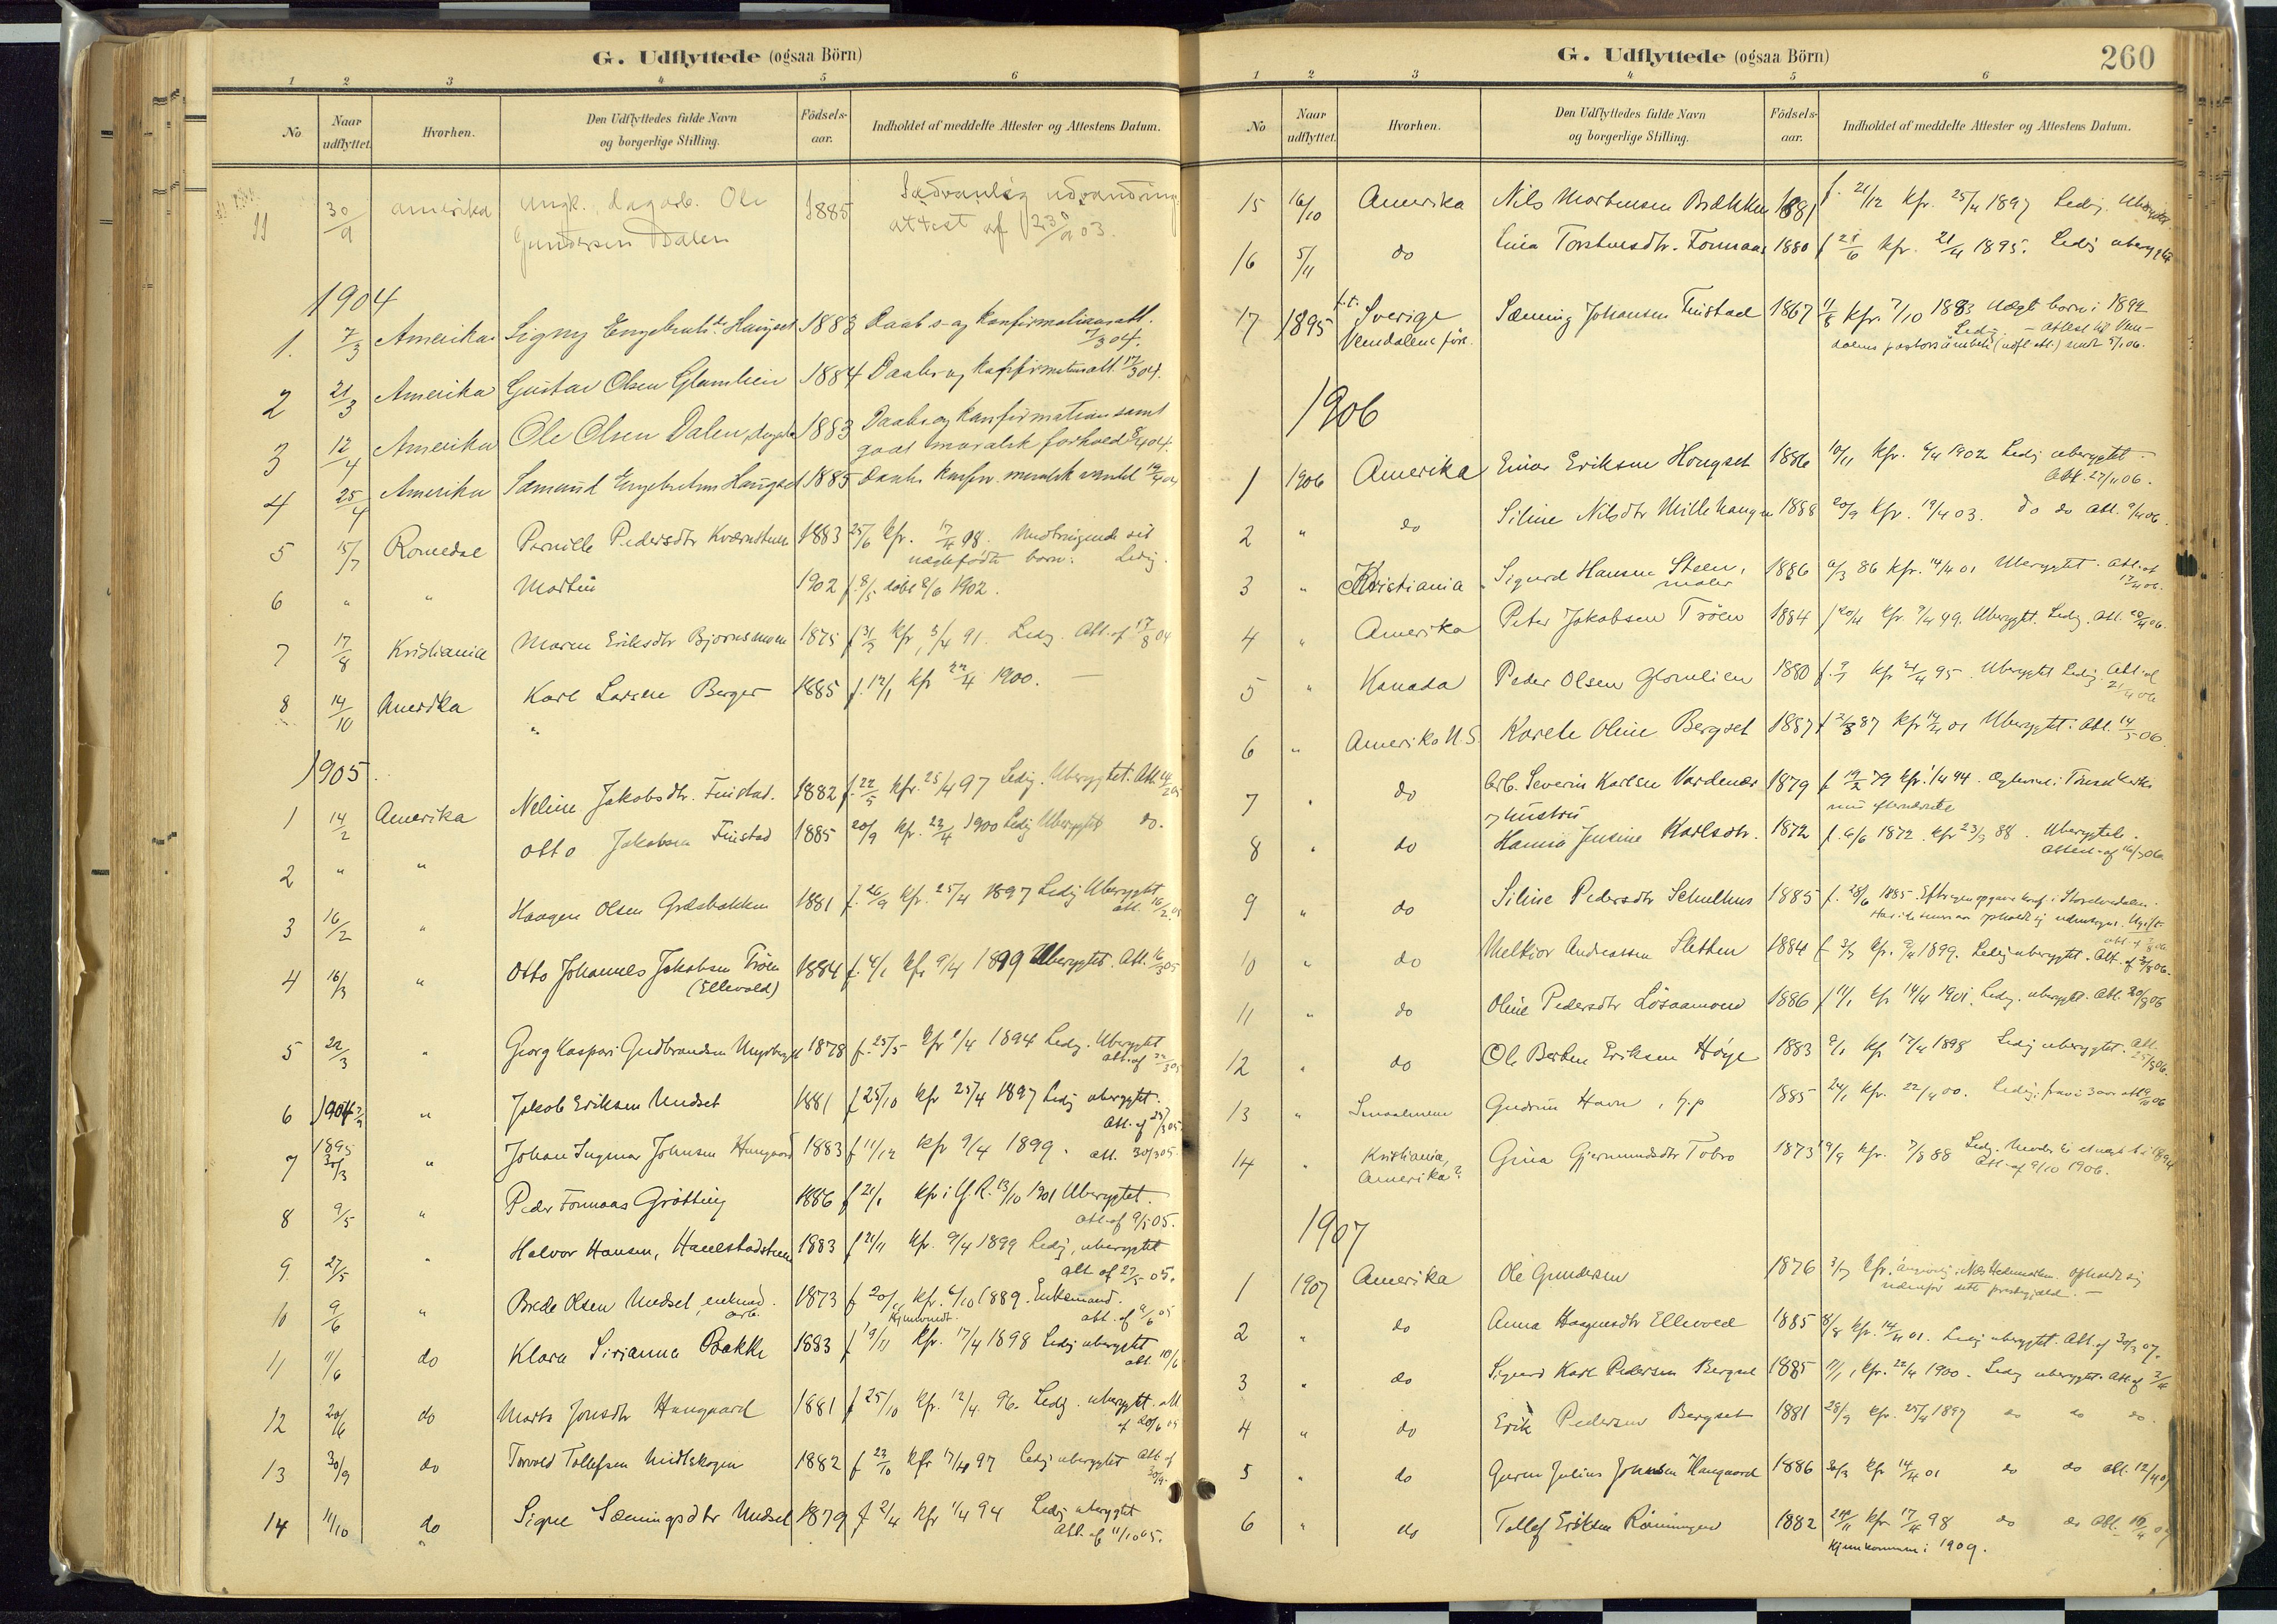 G. Udflyttede (ogsaa Börn)
1 2 3 4 5 6
No Naar udflyttet. Hvorhen. Den Udflyttedes fulde Navn og borgerlige Stilling. Födsels-aar. Indholdet af meddelte Attester og Attestens Datum.
11 30/9 amerika ungk. dagarb. Ole 1885 Sædvanlig udvandring
Gundersen Dalen attest af 03.
1904
1. 7/3 Amerika Signy Engebretsdr Haugset 1883 Daabs- og Konfirmationsatt. 7/3 04.
2 21/3 Amerika Gustav Olsen Glomlien 1884 Daabs og Konfirmationsatt. 17/3 04.
3 12/4 Amerika Ole Olsen Dalen, 1883 Daabs og Konfirmation samt
godt moralsk forhold 8/4 04.
4 25/4 Amerika Engebretsen Haugset 1885 Daabs konfirm. moralsk vandel
5 15/7 Romedal Pernille Pedersdtr Kværnstuen 1883 25/6 kfr. 17/4 98. Medbringende sit
uægtefødte barn. Ledig.
6 " " Martin 1902 f. 8/5 døbt 8/6 1902.
7 17/8 Kristiania Maren Eriksdtr Bjørnsmoen 1875 f 31/3 kfr. 3/4 91. Ledig. Att. af 17/8 04
8 14/10 Amerika Karl Larsen Berger 1885 f. 12/1 kfr 22/4 1900. —
1905.
1 14/2 Amerika Neline Jakobsdtr. Finstad. 1882 f. 22/5 kfr. 25/4 97 Ledig. Ubergtet. Att. 14/2 05
2 " " Otto Jakobsen Finstad 1885 20/9 kfr. 22/4 1900 Ledig do.
3 16/2 " Haagen Olsen Græsbakken 1881 f. 26/9 kfr. 25/4 1897 Ledig
att. 16/2 05
4 16/3 " Otto Johannes Jakobsen Trøen 1884 f. 4/1 kfr 9/4 1899 Att. 16/3 05
(Ellevold)
5 22/3 " Georg Kaspari Gudbrandsen 1878 f. 25/5 kfr 1/4 1894 Ledig.
att. af 22/3 05
6 1904 " Jakob Eriksen Undset 1881 f 25/10 kfr 25/4 1897 Ledig
Att. af 25/3 05
7 1895 30/3 " Johan Ingmar Johnsen Haugaard 1883 f 11/12 kfr 9/4 1899. att. 30/3 05.
8 9/5 " Peder Formoas Grøtting 1886 f 21/1 kfr i Y.R. 13/10 1901
att. af 9/5 05.
9. 27/5 " Halvor Hansen, Hanestadstuen 1883 f 21/11 kfr. 9/4 1899 Ledig,
att af 27/5 05.
10 9/6 " Brede Olsen Undset, enkmd. 1873 f 20/11 kfr. 6/10 1889. Enkemand.
arb. att. af 9/6 05
11 11/6 do Klara Sirianna Bakke 1883 f 19/11 kfr. 17/4 1898 Ledig
att. 10/6
12 20/6 do Marta Jonsdtr Haugaard 1881 f 25/10 kfr. 12/4 96. Ledig. att
af 20/6 05
13 30/9 do Torvald Tollefsen Midtskogen 1882 f 23/10 kfr 17/4 97 Ledig att. af
30/9.
14 11/10 do Signe Sæmingsdtr Undset 1879 f 2/4 kfr 1/4 94 Ledig
Att. af 11/10 05.
G. Udflyttede (ogsaa Börn) 260
1 2 3 4 5 6
No Naar udflyttet. Hvorhen. Den Udflyttedes fulde Navn og borgerlige Stilling. Födsels-aar. Indholdet af meddelte Attester og Attestens Datum.
15 16/10 Amerika Nils Mortensen Bækken 1881 f. 21/12 kfr. 25/4 1897 Ledig.
16 5/11 do Lina Torstensdtr. Formoas 1880 f 28/6 kfr. 21/4 1895. Ledig
17 1895 f.t. Sverige Sæming Johansen Finstad 1867 11/8 kfr. 7/10 1883 Uægt barn i 1892
Vemdalens förs. Ledig. – attest til Vem-
dalens pastorsämbete (udfl. att.) sendt 5/1 06.
1906
1 1906 Amerika Einar Eriksen Hongset 1886 10/11 kfr. 6/4 1902 Ledig
Att. 27/1 06.
2 " do Siline Nilsdtr Mittehaugen 1888 20/9 kfr. 19/4 03. do do att. 9/4 06.
3 " Kristiania Sigurd Hansen Steen, 1886 9/3 86 kfr. 14/4 01 Att. af
maler 17/4 06.
4 " Amerika Peter Jakobsen Trøen 1884 f 20/4 kfr. 9/4 99. Ledig. Att. 20/4 06.
5 " Kanada Peder Olsen Glomlien 1880 f. kfr 21/4 95. Ledig. Att. af
21/4 06
6 " Amerika U.S. Karete Oline Bergset 1887 f 2/3 87 kfr 14/4 01 Att. 14/5 06.
7 " do Arb. Severin Karlsen Vardenær 1879 f 19/2 79 kfr. 1/4 94. i kirke
og hustru med efternævnte
8 " do Hanna Jensine Karlsdtr. 1872 f. 6/6 1872. kfr 23/9 88.
Attest af 16/7 06.
9 " do Siline Pedersdtr Schulhus 1885 f. 28/6 1885. Efter egen opgave konf. i Storelvedalen.
Har i de senere aar opholdt sig udenbygds. Ugift.
10 " do Melkior Andreassen Sletten 1884 f 3/7 kfr. 9/4 1899. Ledig Att. af 3/8 06.
11 " do Oline Pedersdtr Løsaamoen 1886 f 11/1 kfr 14/4 1901. Ledig. Att. 20/8 06
12 " do Ole Berten Eriksen Høye 1883 9/1 kfr 17/4 1898 Ledig Att.
25/8 06.
13 " Smaalenene Gudrun Havn, 1885 24/1 kfr. 22/4 00. Ledig,
14 " Kristiania, Gina Gjermundsdtr Tobro 1873 19/9 kfr. 7/8 88 Ledig. Moder til et uægte b. i 1894
Amerika? Att. af 9/10 1906.
1907
1 1907 Amerika Ole Gundersen 1876 3/7 kfr. angivelig i Næs Hedemarken. opholdt sig
udenfor dette prestegjæld. —
2 " do Anna Haagensdtr Ellevold 1885 8/8 kfr. 14/4 01. Ledig Att. af 30/3 07.
3 " do Sigurd Karl Pedersen Bergset 1885 11/1, kfr. 22/4 1900. Ledig Att af 2/4
4 " do Erik Pedersen Bergset 1881 28/9 kfr. 25/4 1897 do do do.
5 " do Julius Johnsen Haugaard 1886 30/3 kfr 14/4 01 do do att. 12/4 07
6 " do Tollef Eriksen Rønningen 1882 24/11 kfr 17/4 98 do do Att. 16/4 07
Hjemkommen i 1909.